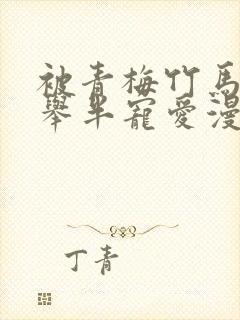 被青梅竹馬
舉半寵愛漫
丁青